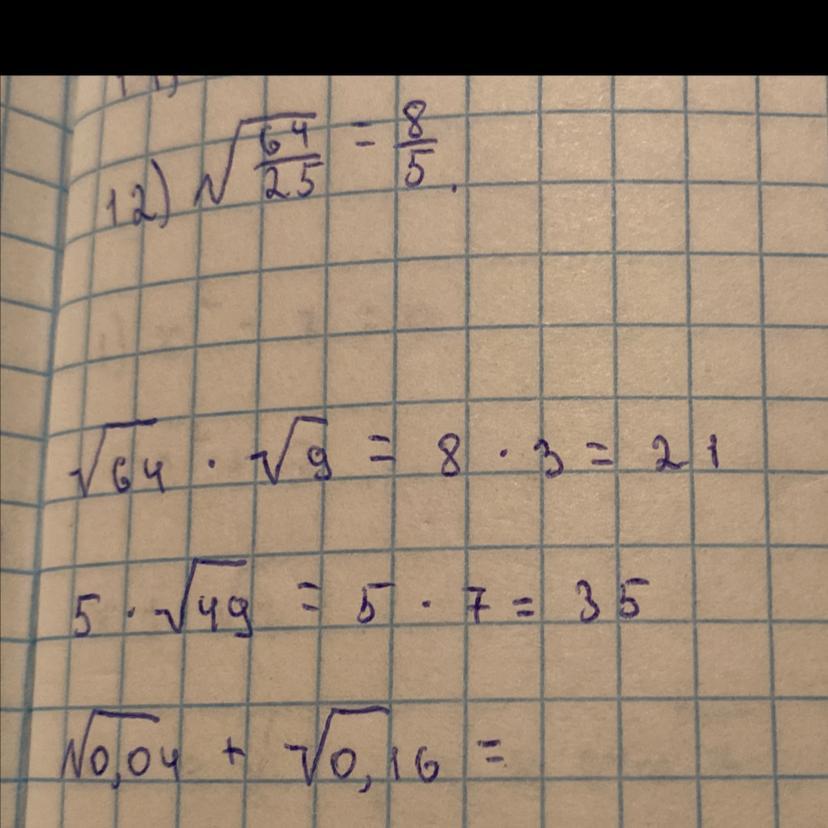 12) √64/25 = 8/5.
√64 · √9 = 8 · 3 = 21
5 · √49 = 5 · 7 = 35
√0,04 + √0,16 =